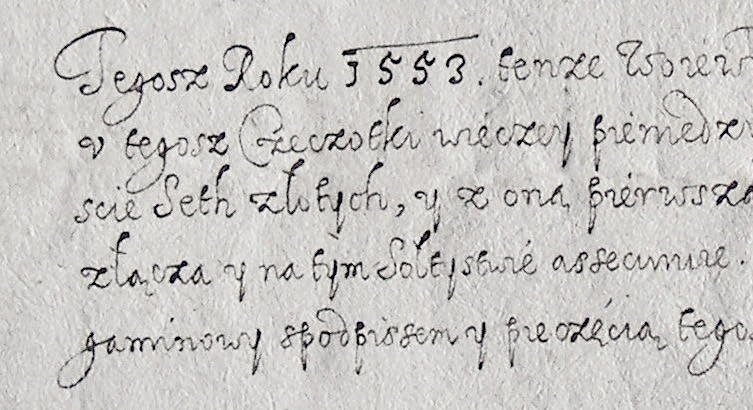 Tegosz Roku 1553. tenze Woiew
v tegosz Czeczotki wiéczey piémędzi
scie Seth złotych, y z oną piérwszą
złącza y na tym Soltystwié assecuruie.
gaminowy spodpissem y pieczęcią tego